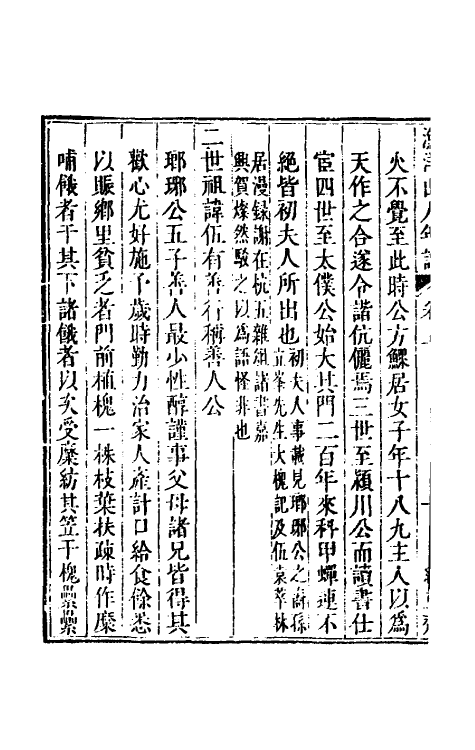 火不覺至此時公方鰥居女子年十八九主人以爲
天作之合遂令諧伉儷焉三世至潁川公而讀書仕
宦四世至太僕公始大其門二百年來科甲蟬連不
絕皆初夫人所出也初夫人事載見瑯琊公之裔孫
立峯先生大槐記及伍袁萃林
居漫録謝在杭五雜俎諸書嘉
興賀燦然駁之以爲語怪非也
二世祖諱伍有善行稱善人公
瑯琊公五子善人最少性醇謹事父母諸兄皆得其
歡心尤好施予歲時勤力治家人產計口給食餘悉
以賑鄉里貧乏者門前植槐一株枝葉扶疎時作糜
哺餓者于其下諸餓者以次受糜紡其笠于槐纍纍